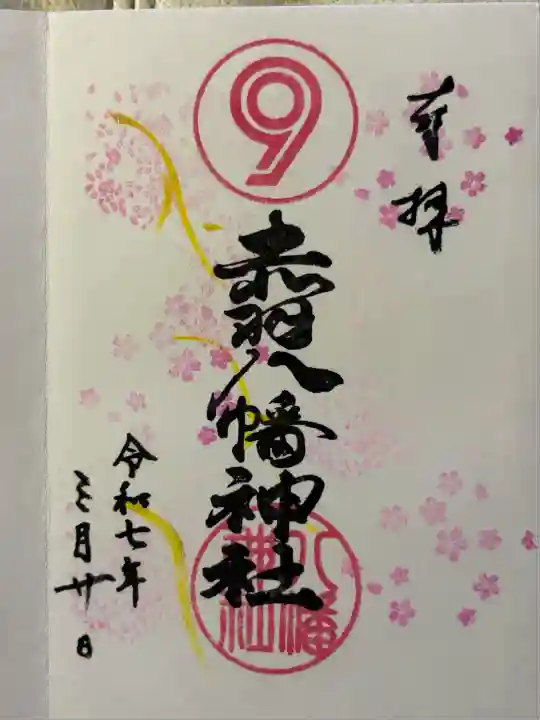 奉拝
9
赤羽八幡神社
八幡
神社
令和七年
三月廿日